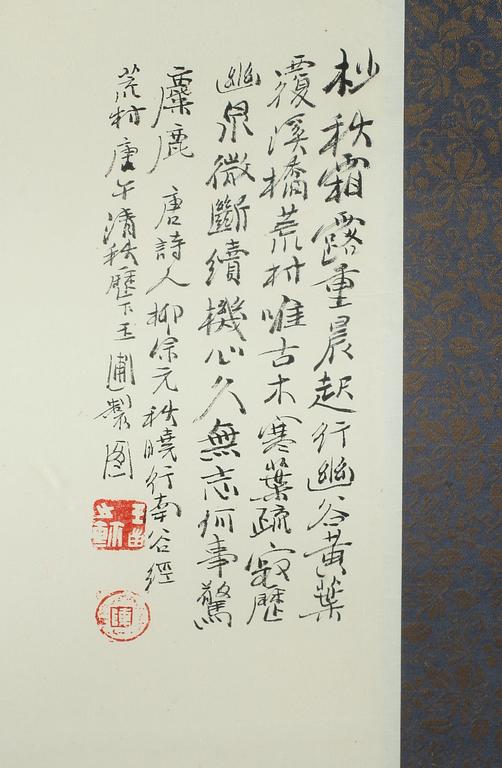 杪秋霜露重晨起行幽谷黃葉
覆溪橋荒村唯古木寒葉疏寂歷
幽泉微斷續機心久無忘何事驚
麋鹿 唐詩人柳宗元秋曉行南谷經
荒村庚午清秋歷下玉圃製圖